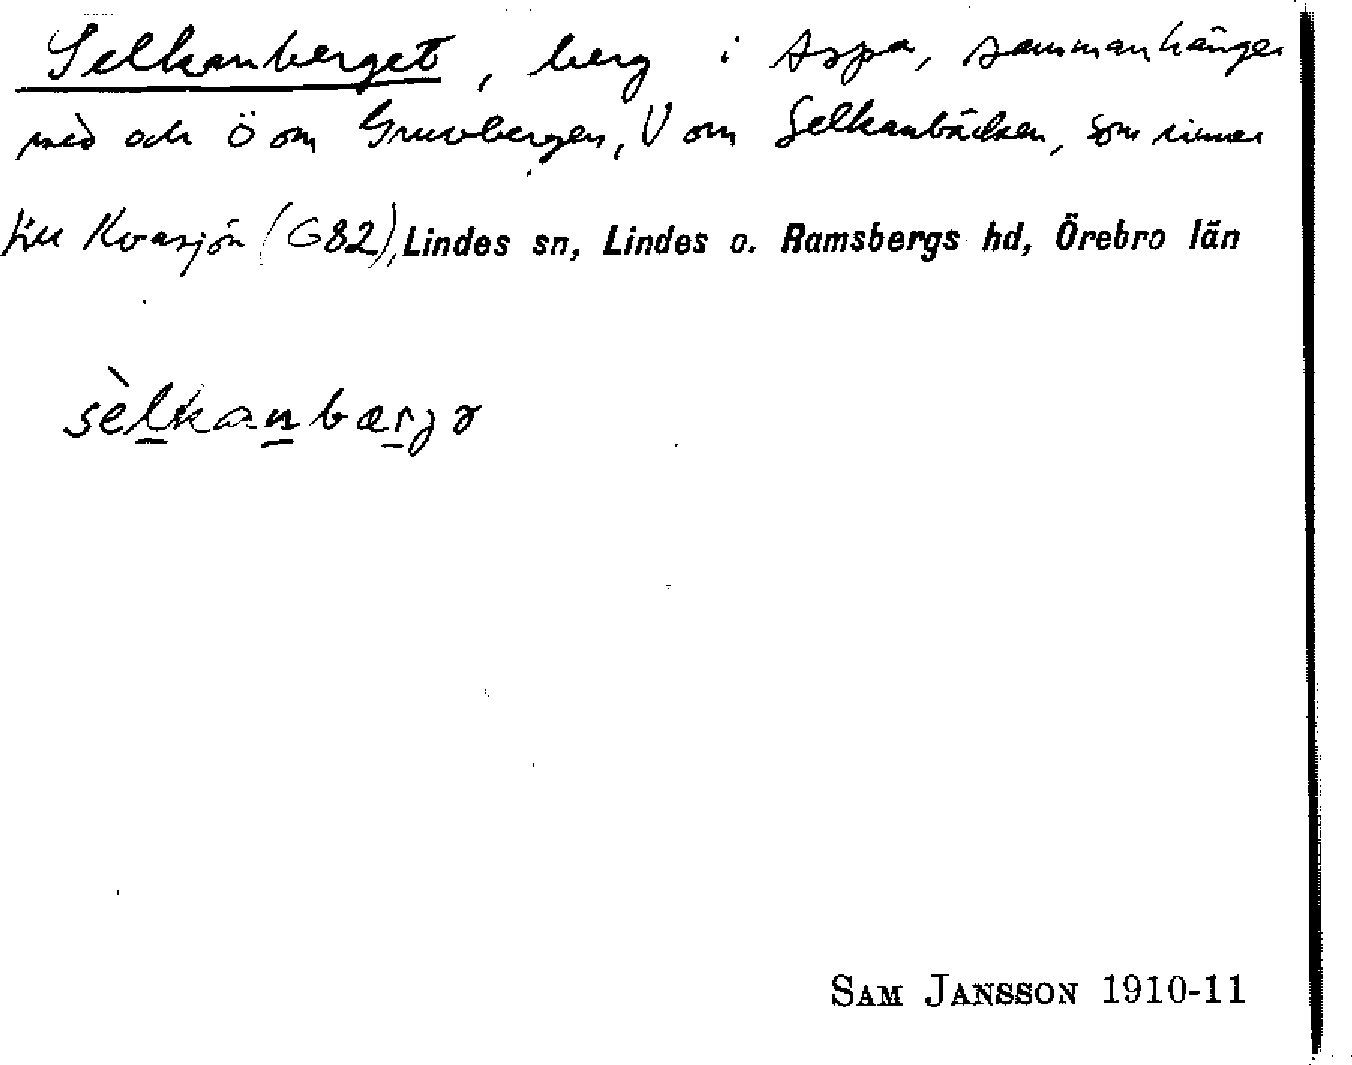 Selkanberget, berg i Aspa, sammanhänger
med och Ö om Gruvbergen, V om Selkanbäcken, som rinner
till Kvasjön (G82), Lindes sn, Lindes o. Ramsbergs hd, Örebro län
sèlkanbærjə
SAM JANSSON 1910-11